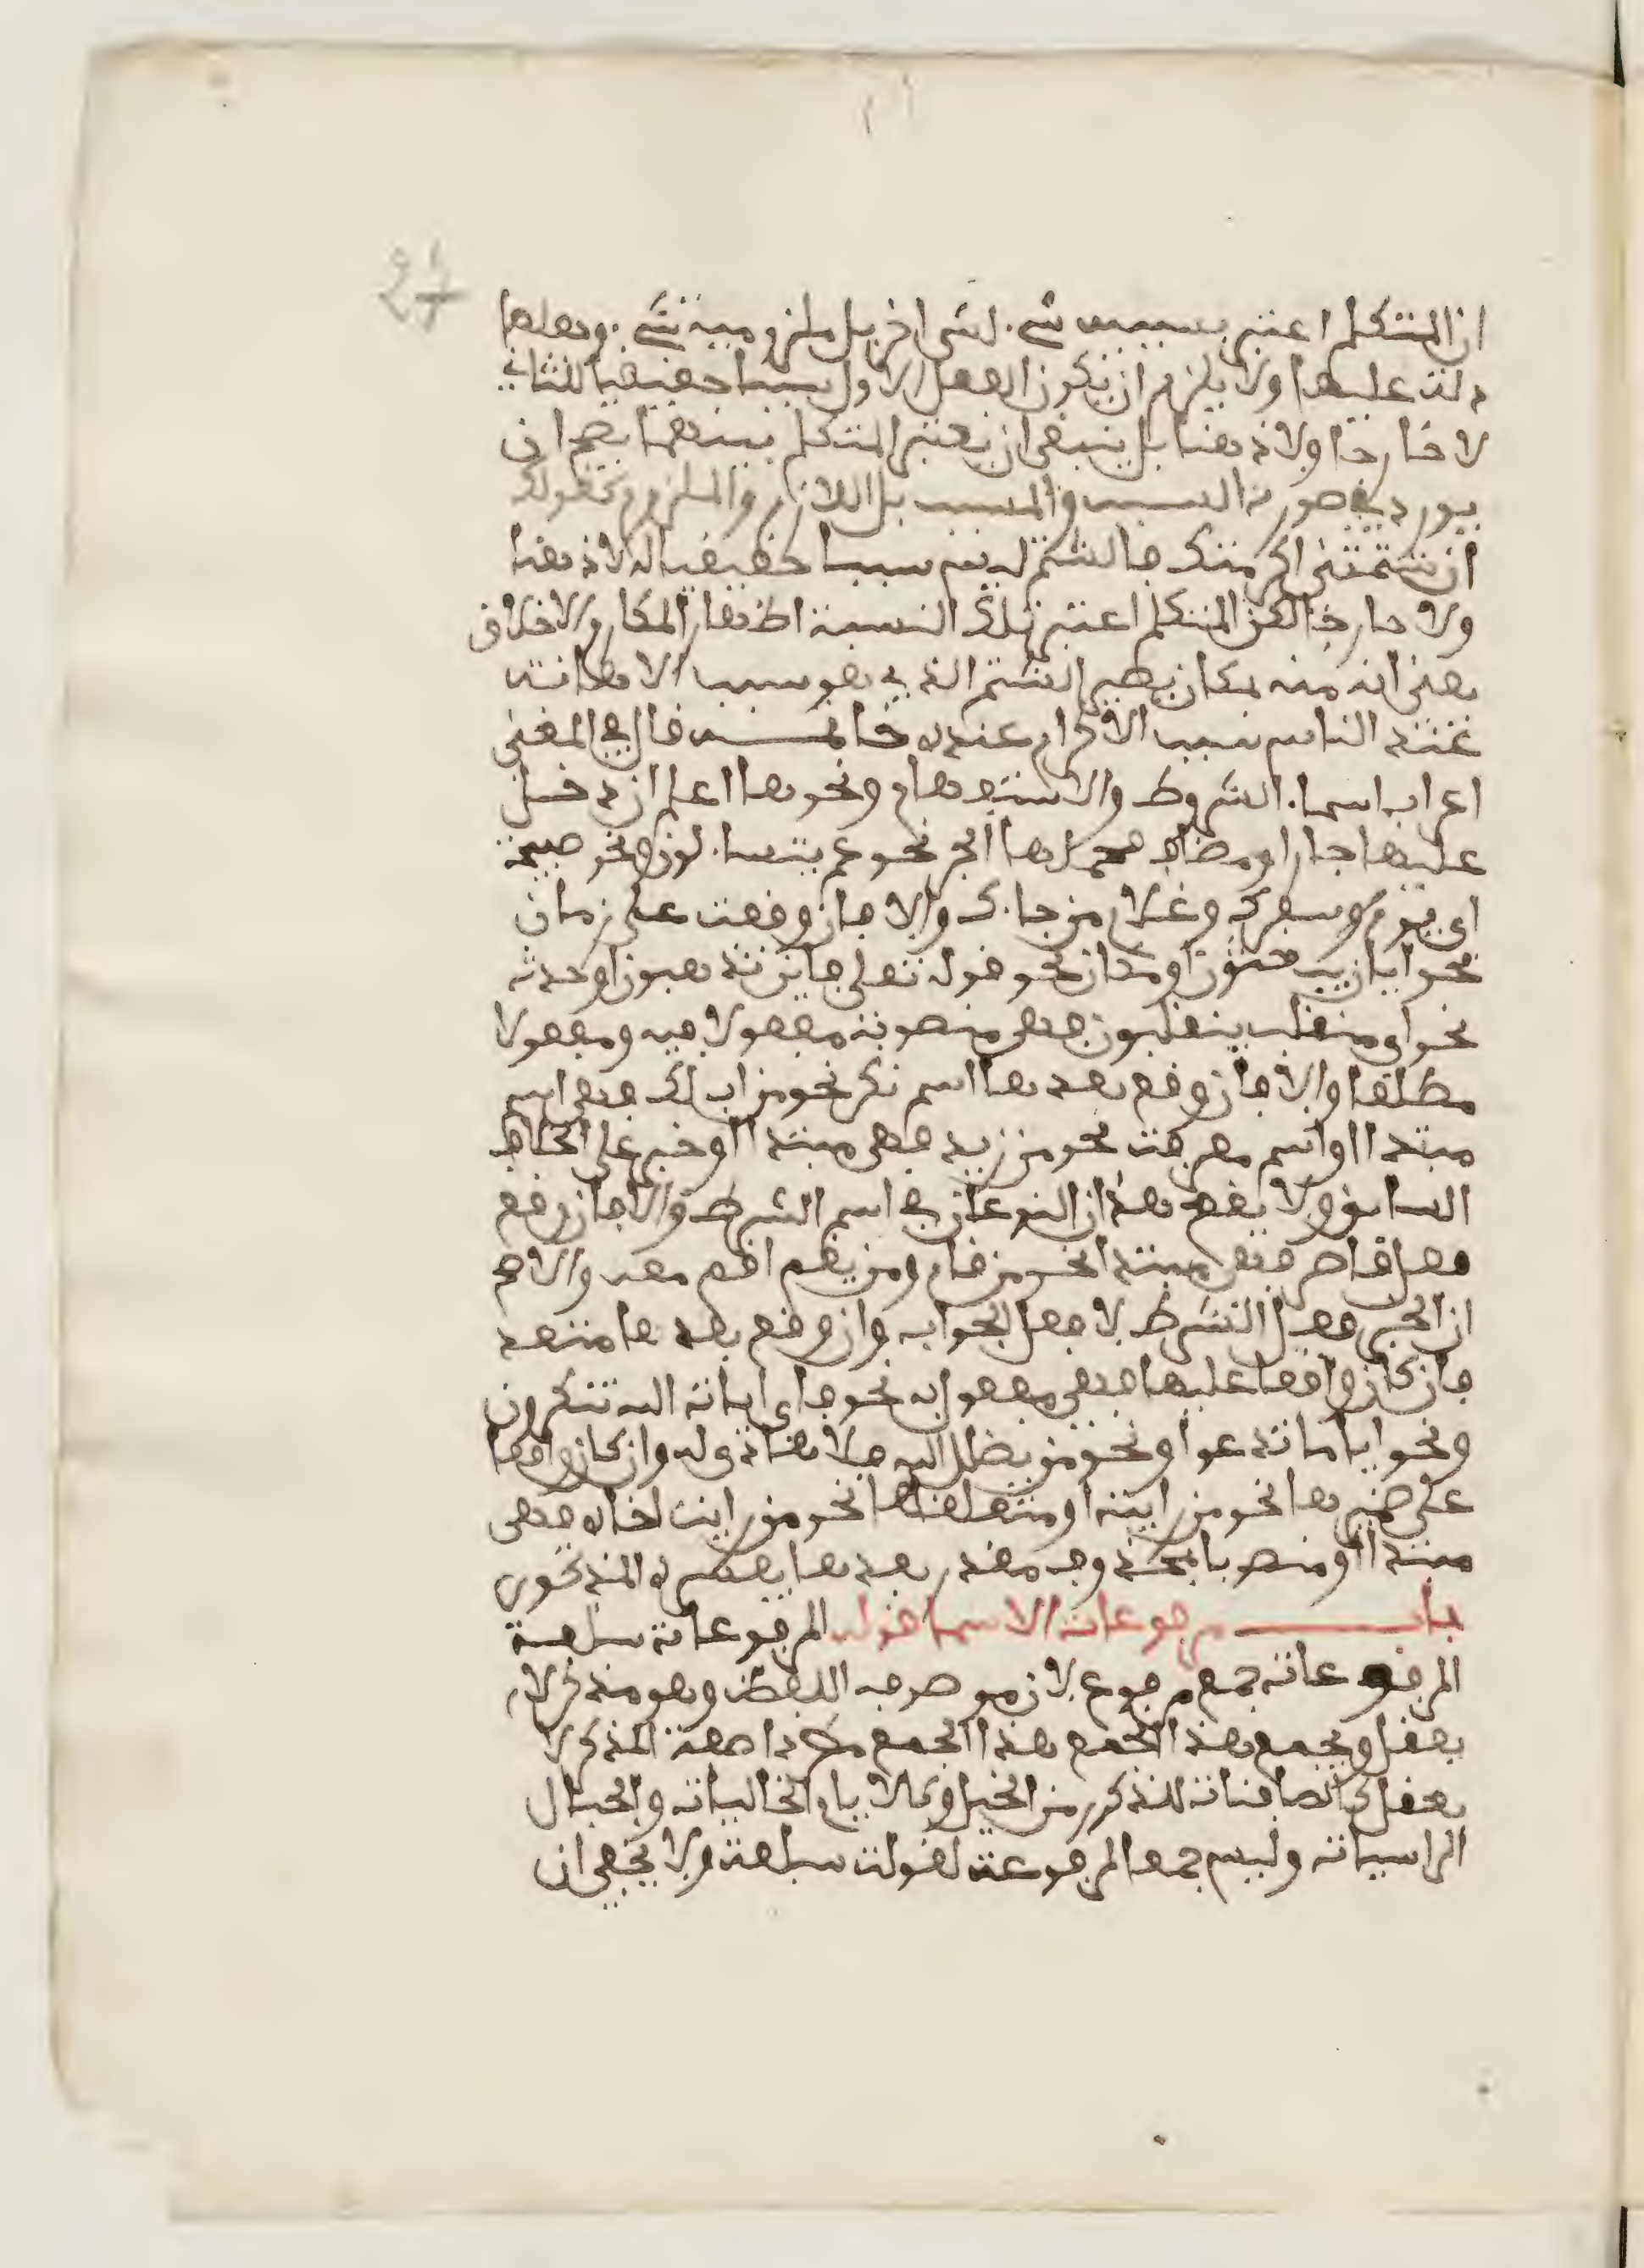 27
ان المتكلم اعتبر بسببيت شيء لشي اخر بل ملزومية شيء وجعلها
دلت عليها ولا يلزم ان يكون الفعل الاول سببا حقيقيا للثاني
لا خارجا ولا ذهنا بل ينبغي ان يعتبر المتكلم بينهما يصح ان
يورد في صورة السبب والمسبب بل اللازم والملزوم كقولك
ان شتمتني اكرمتك فالشتم ليس سببا حقيقيا له لا ذهنا
ولا خارجا لكن المتكلم اعتبر تلك النسبة اظهار المكارم الاخلاق
يعني انه منه بمكان يصير الشتم الذي هو سبب الاهانة
عند الناس سبب الاكرام عنده خاتمـــة قال في المغني
اعراب اسماء الشروط والاستفهام ونحوها اعلم ان دخل
عليها جار او مضاف فمحلها الجر نحو عم يتساءلون ونحو صبيحة
اي يوم سفرك وغلام من جاءك والا فان وقعت على زمان
نحو ايان يبعثون او مكان نحو قوله تعلى فاين تذهبون او حدث
نحو اي منقلب ينقلبون فهي منصوبة مفعولا فيه ومفعولا
مطلقا والا فان وقع بعدها اسم نكرة نحو من اب لك فهي اسم
مبتدا او اسم معرفة نحو من زيد فهي مبتدا او خبر على الخلاف
السابق ولا يقع هذان النوعان في اسم الشرط والا فان وقع
فعل قاصر فهي مبتدا نحو من قام ومن يقم اقم معه والاصح
ان الخبر فعل الشرط لا فعل الجواب وان وقع بعدها متعد
فان كان واقعا عليها فهي مفعول به نحو فاي ايات الله تنكرون
ونحو ايا ما تدعوا ونحو من يضلل الله فلا هادي له وان كان واقعا
على ضميرها نحو من رايته او متعلقها نحو من رايت اخاه فهي
مبتدا او منصوبا بمحذوف مقدر بعدها يفسره المذكور
بـــاب مرفوعات الاسما قوله المرفوعات سبعة
المرفوعات جمع مرفوع لان موصوفه اللفظ وهو مذكر لا
يعقل ويجمع هذا الجمع هذا الجمع مطردا صفة المذكر لا
يعقل كالصافنات للذكور من الخيل وكالايام الخاليات والجبال
الراسيات وليس جمع المرفوعة لقولت سبعة ولا يخفى ان